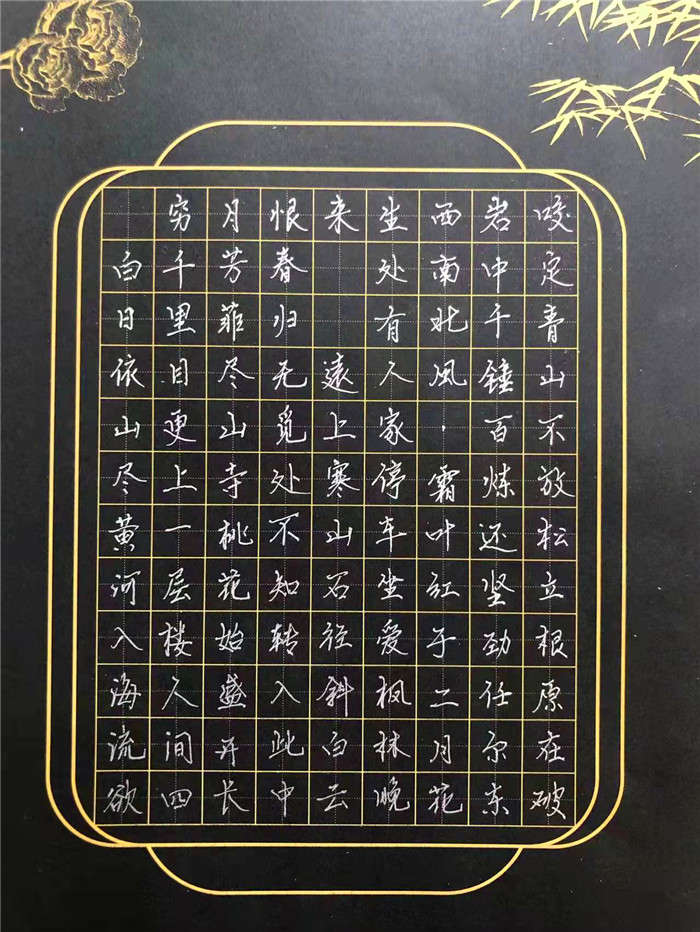 咬定青山不放松立根原在破
岩中千锤百炼还坚劲任尔东
西南北風·霜叶红于二月花
生处有人家停车坐爱枫林晚
来 遠上寒山石径斜白云
恨春归无觅处不知转入此中
月芳菲尽山寺桃花始盛开长
穷千里目更上一层楼人间四
白日依山尽黄河入海流欲